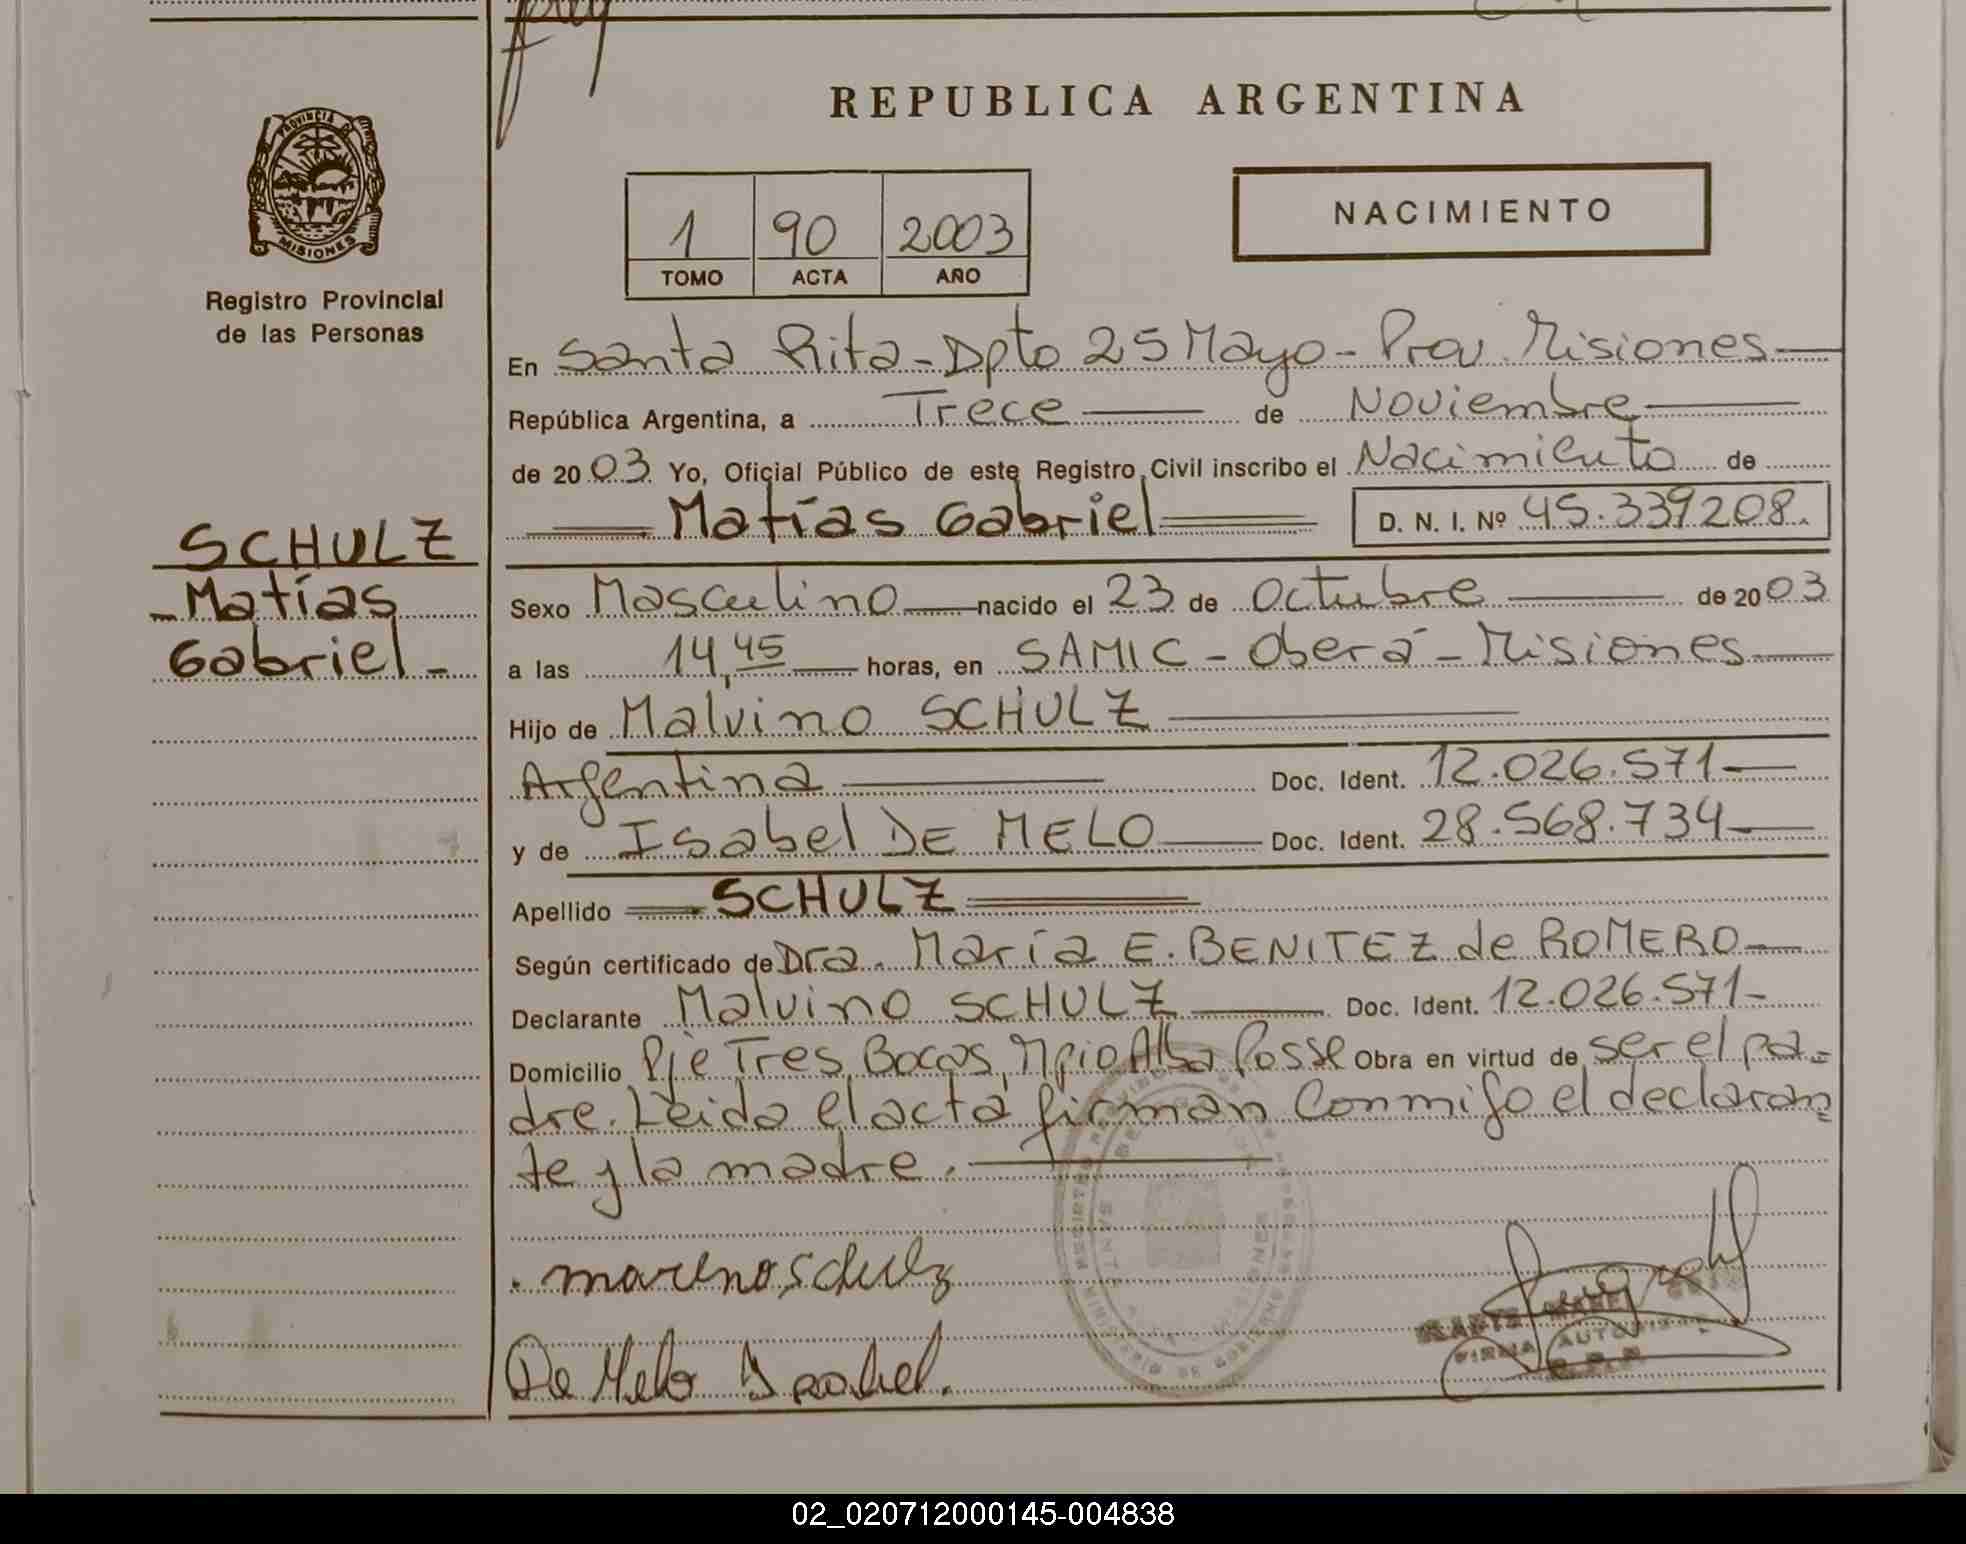 PROVINCIA DE
MISIONES
Registro Provincial
de las Personas
SCHULZ
Matías
Gabriel
REPUBLICA ARGENTINA
1 90 2003
TOMO ACTA AÑO
NACIMIENTO
En Santa Rita - Dpto 25 Mayo - Prov. Misiones
República Argentina, a Trece de Noviembre
de 2003 Yo, Oficial Público de este Registro Civil inscribo el Nacimiento de
Matías Gabriel D. N. I. Nº 45.339208.
Sexo Masculino nacido el 23 de Octubre de 2003
a las 14,45 horas, en SAMIC - Oberá - Misiones
Hijo de Malvino SCHULZ
Argentina Doc. Ident. 12.026.571
y de Isabel DE MELO Doc. Ident. 28.568.734
Apellido SCHULZ
Según certificado de Dra. María E. BENITEZ de ROMERO
Declarante Malvino SCHULZ Doc. Ident. 12.026.571
Domicilio Pje Tres Bocas, Mpio Alba Posse Obra en virtud de ser el pa=
dre. Leida el acta firman Conmigo el declaran=
te y la madre.
Schulz
De Melo Isabel.
FIRMA AUTORIZADA
02_020712000145-004838